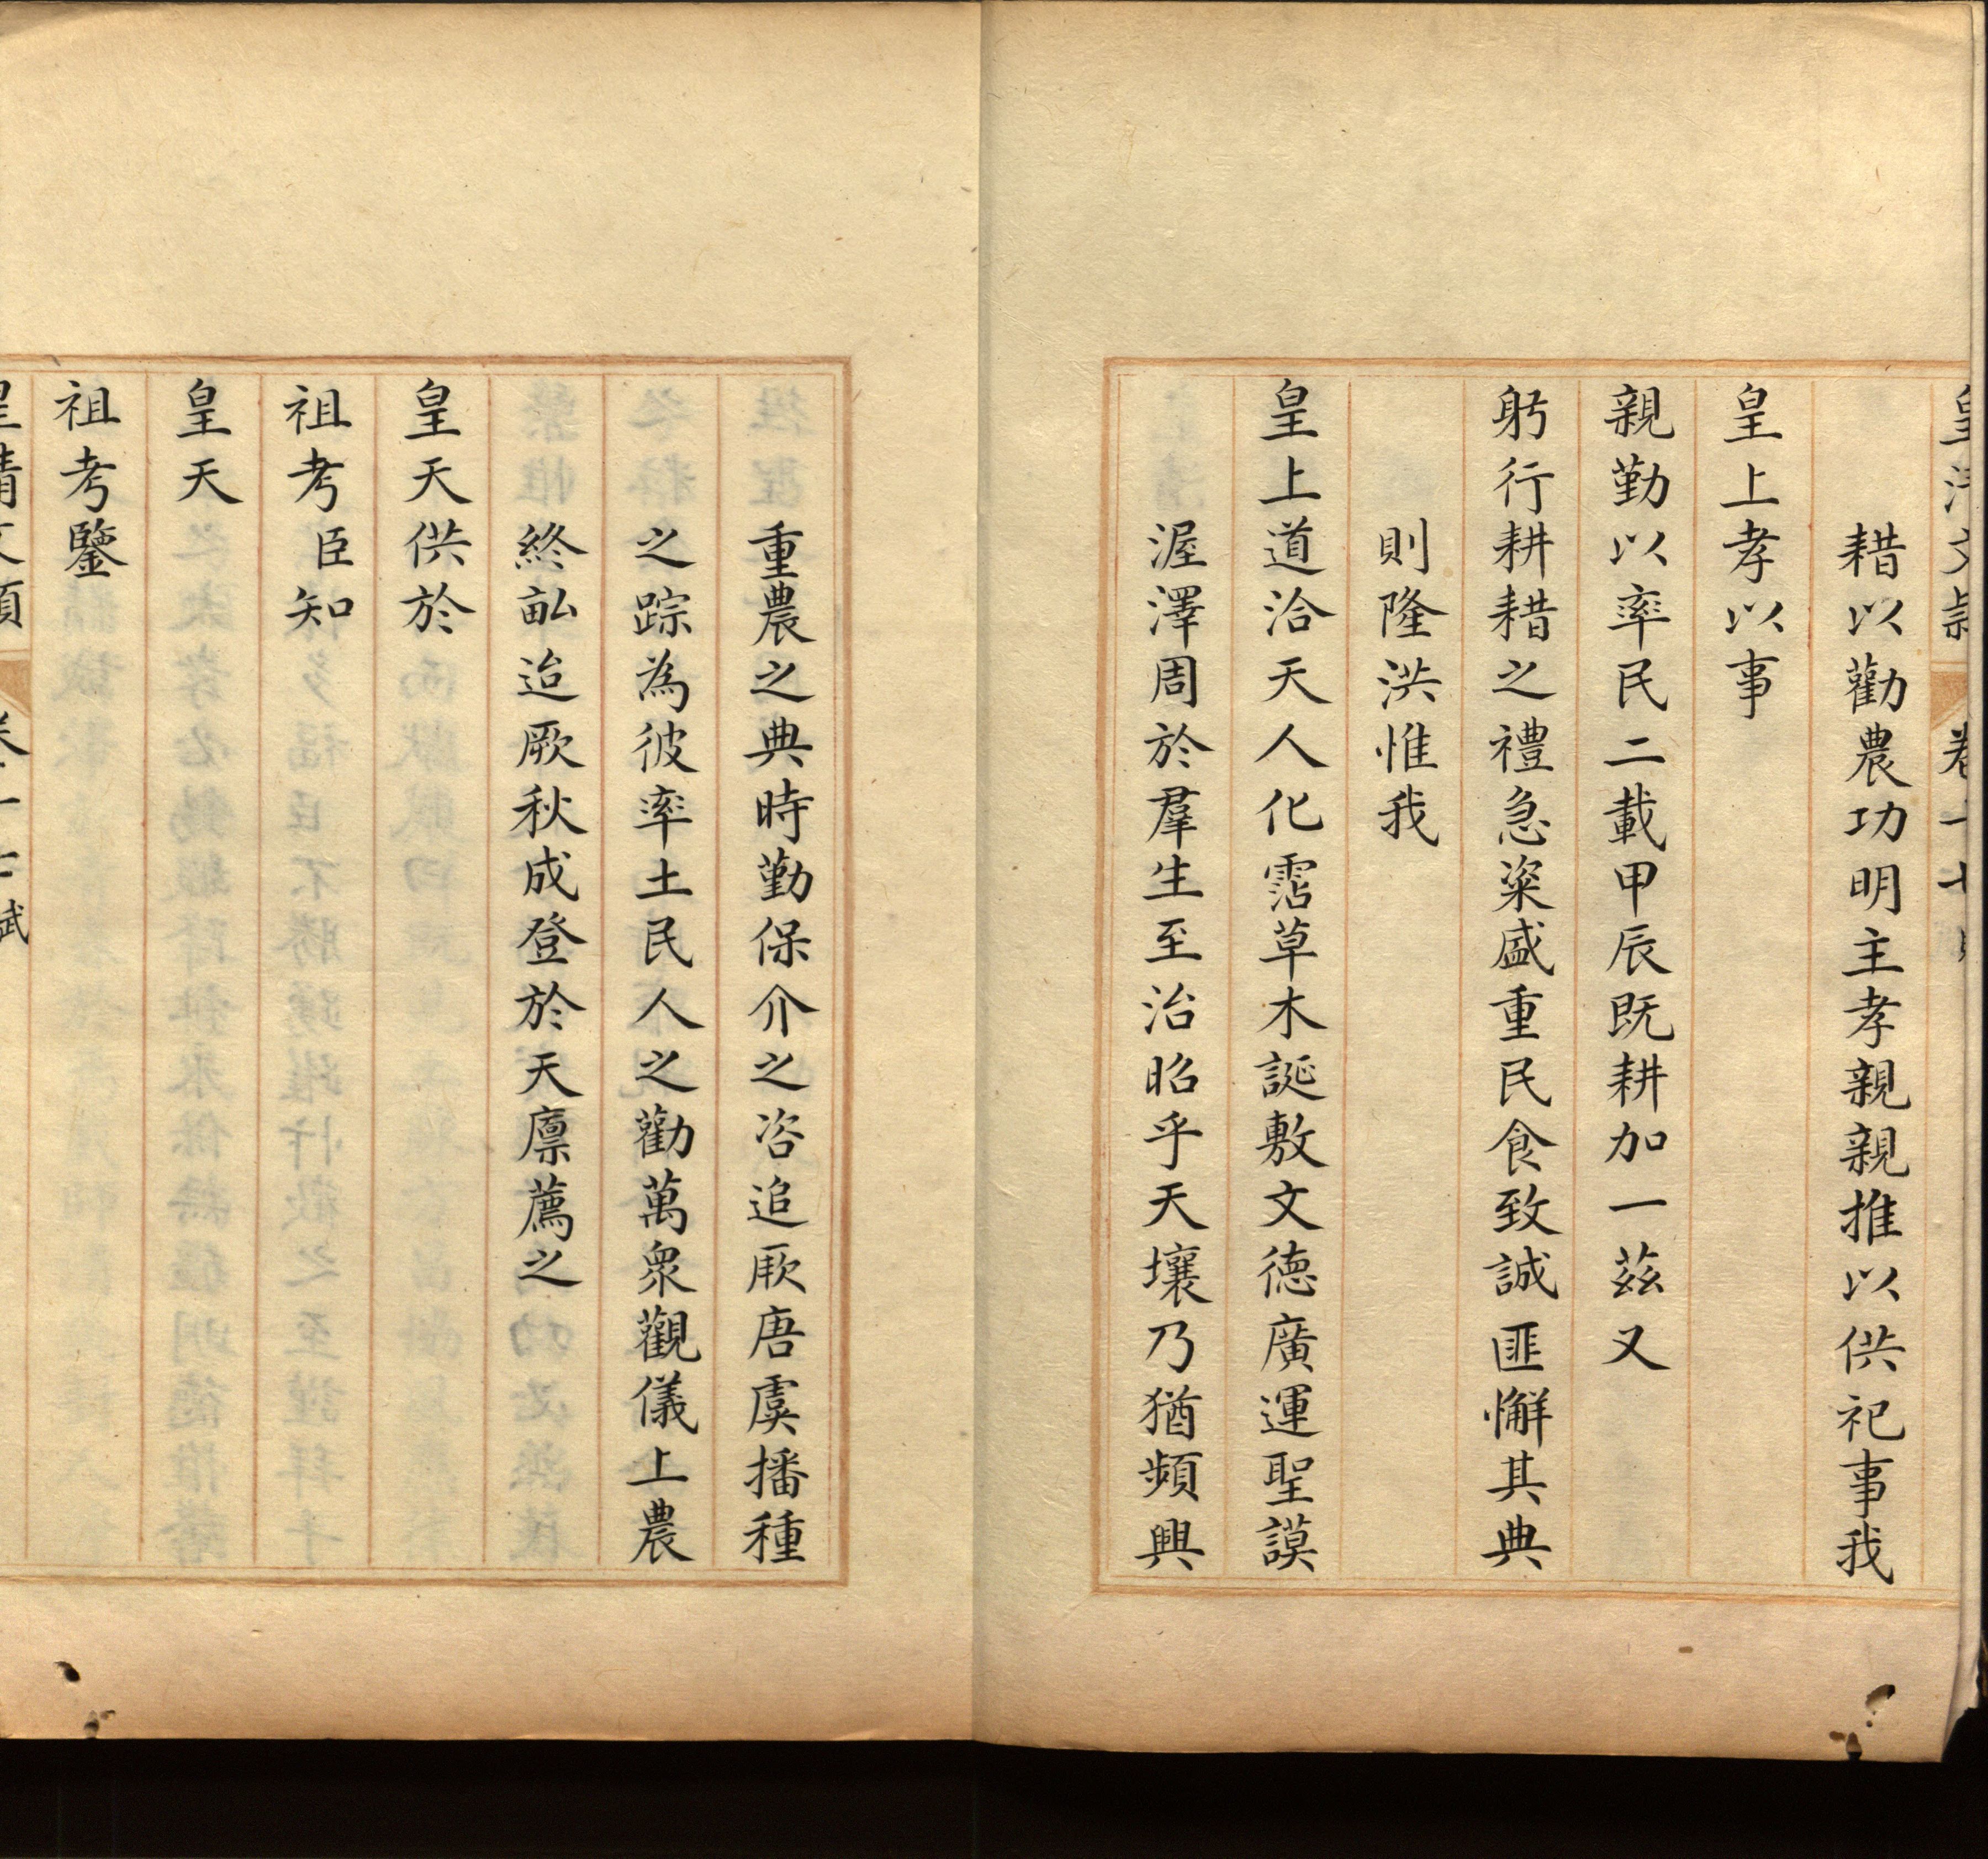 耤以勸農功明主孝親親推以供祀事我
皇上孝以事
親勤以率民二載甲辰既耕加一茲又
躬行耕耤之禮急粢盛重民食致誠匪懈其典
則隆洪惟我
皇上道洽天人化霑草木誕敷文德廣運聖謨
渥澤周於羣生至治昭乎天壤乃猶頻興
重農之典時勤保介之咨追厥唐虞播種
之踪為彼率土民人之勸萬衆觀儀上農
終畝迨厥秋成登於天廪薦之
皇天供於
祖考臣知
皇天
祖考鑒